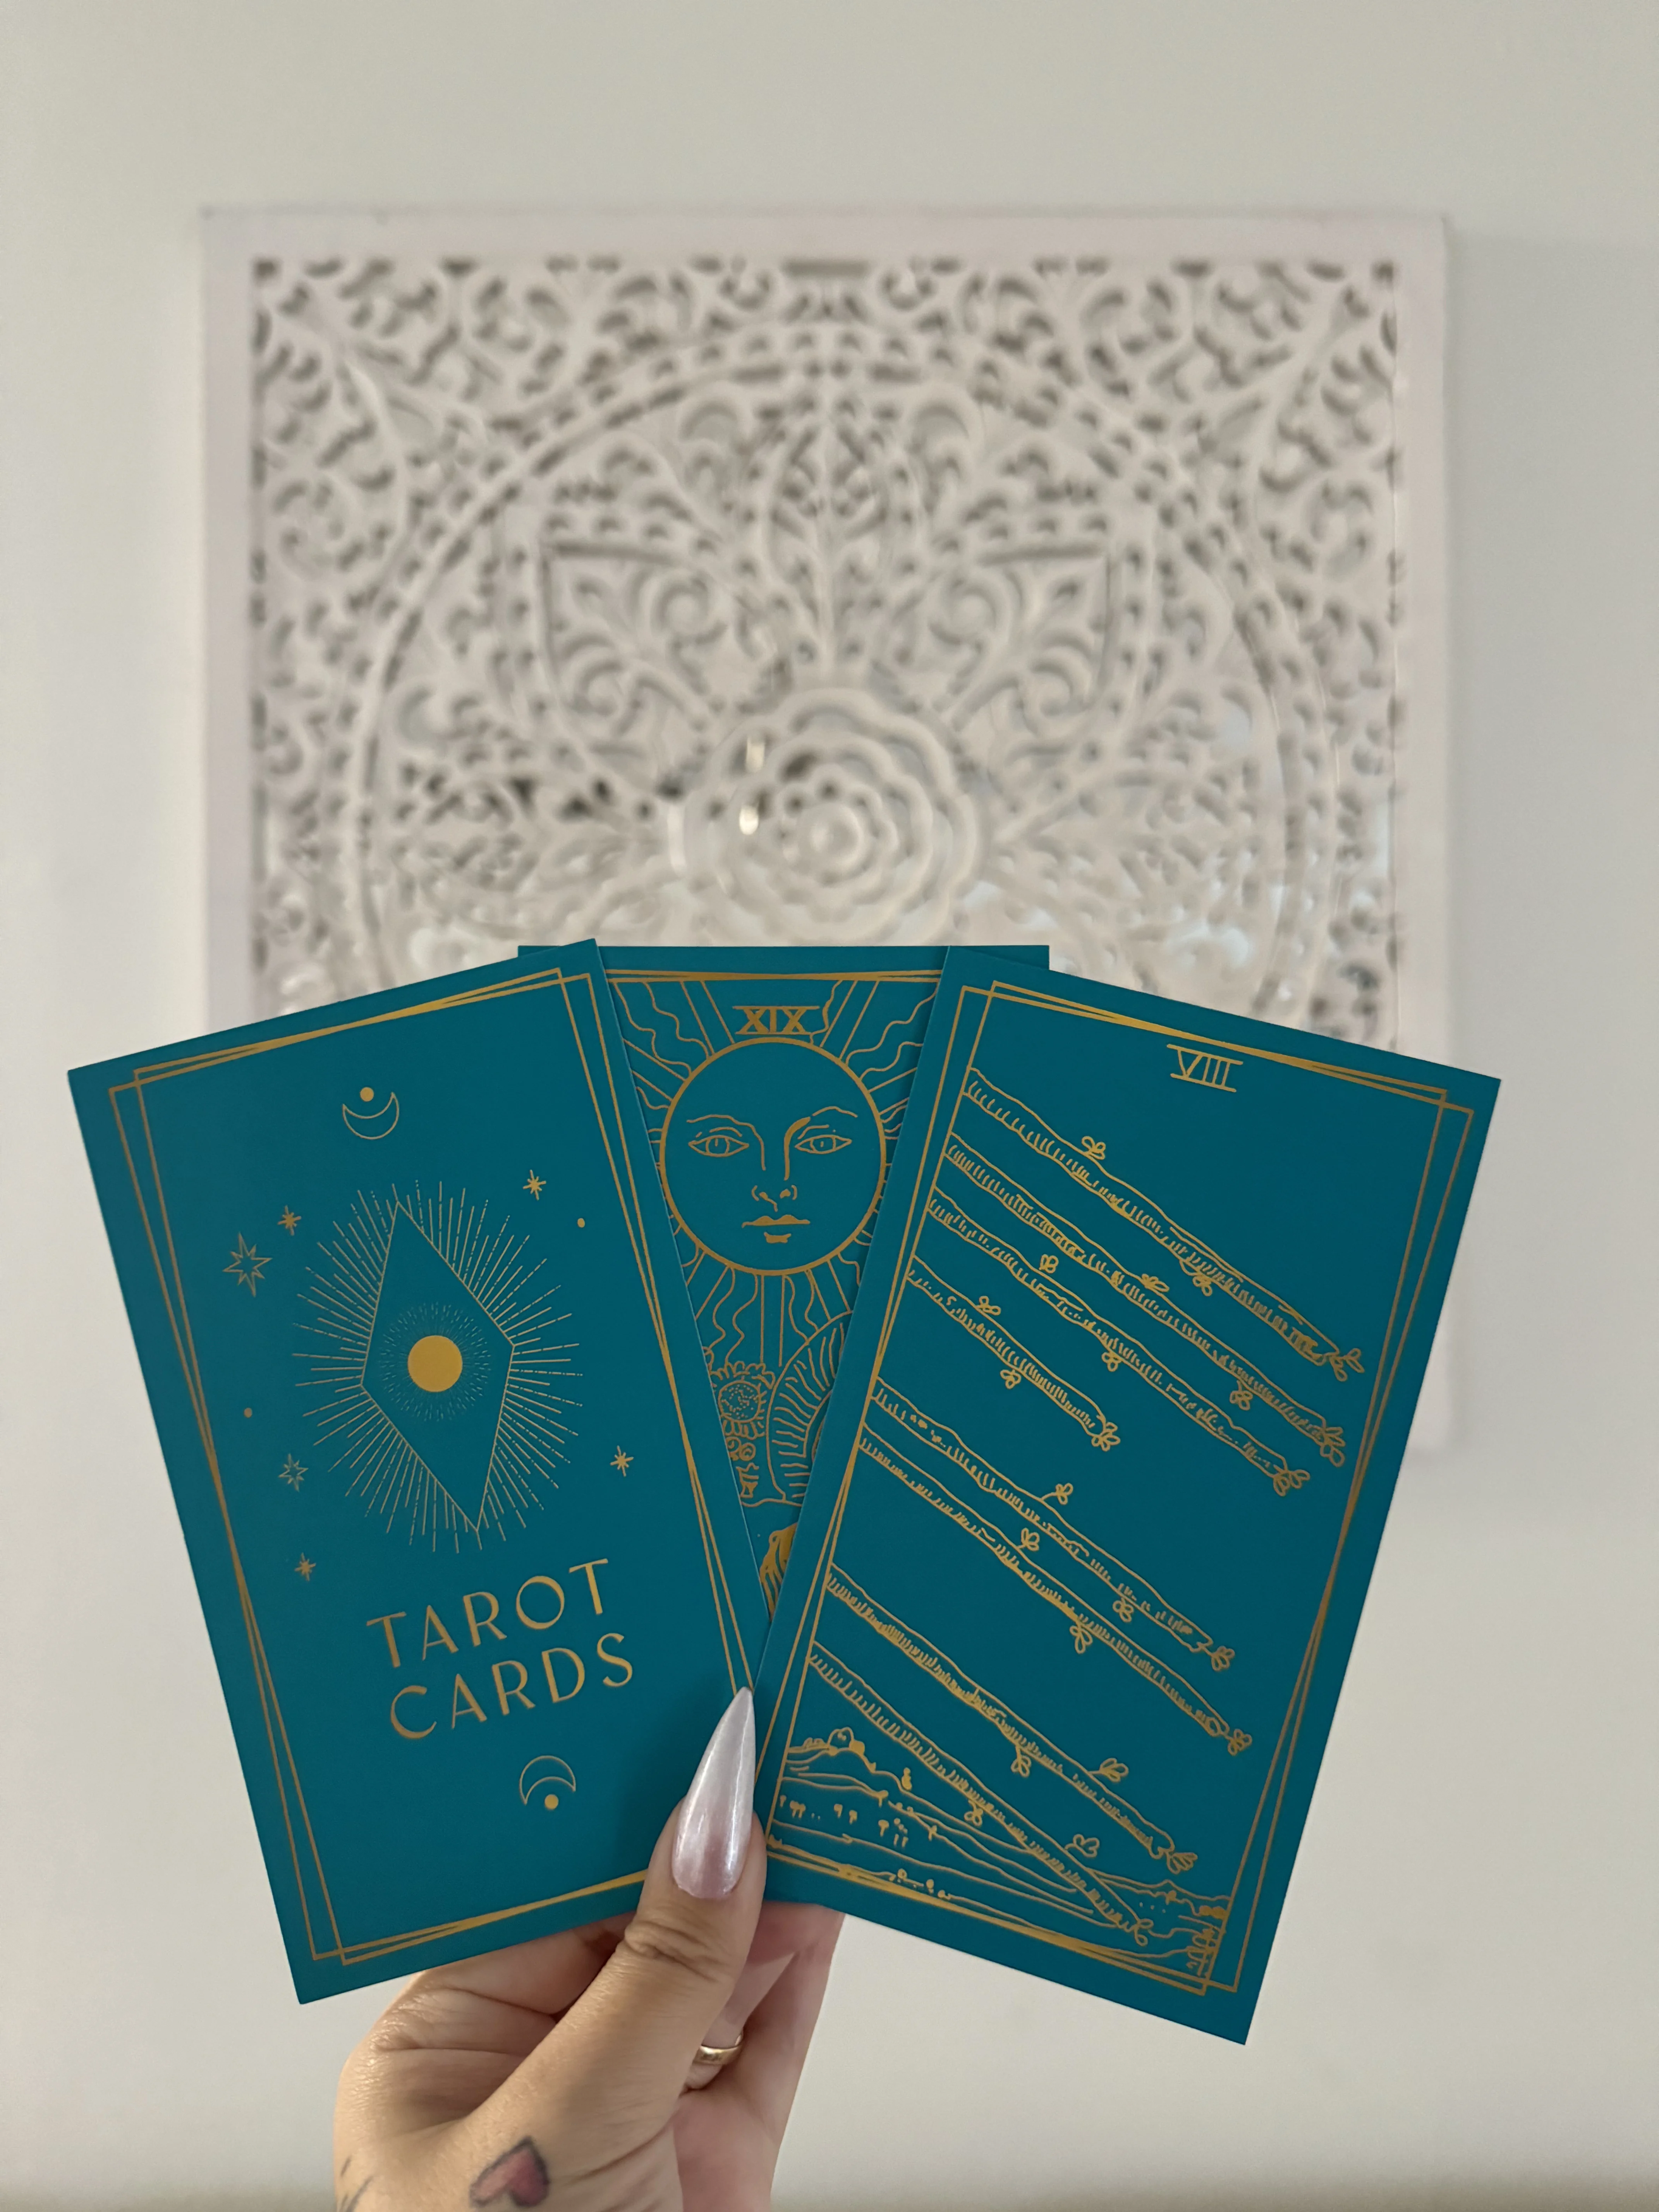 TAROT
CARDS
XIX
VIII